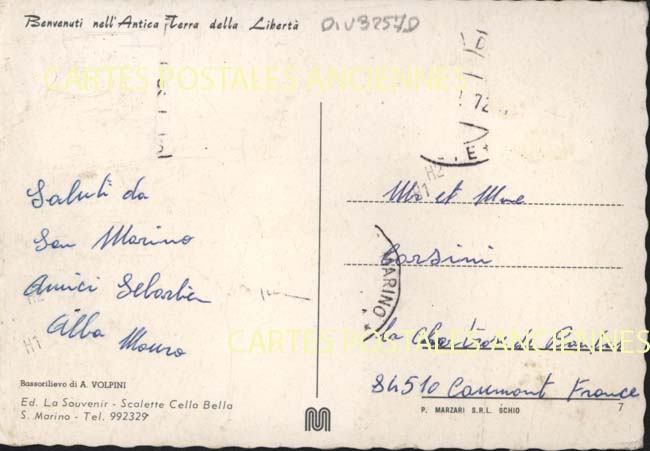 Benvenuti nell'Antica Terra della Libertà
CARTES POSTALES ANCIENNES
72
E
H2
H1
Saluti da
San Marino
Amici
Alba Mauro
H1
Mr et Mme
Corsini
MARINO
La
CARTES POSTALES ANCIENNES
84510 Caumont France
Bassorilievo di A. VOLPINI
Ed. La Souvenir - Scalette Cella Bella
S. Marino - Tel. 992329
M
P. MARZARI S.R.L. SCHIO
7